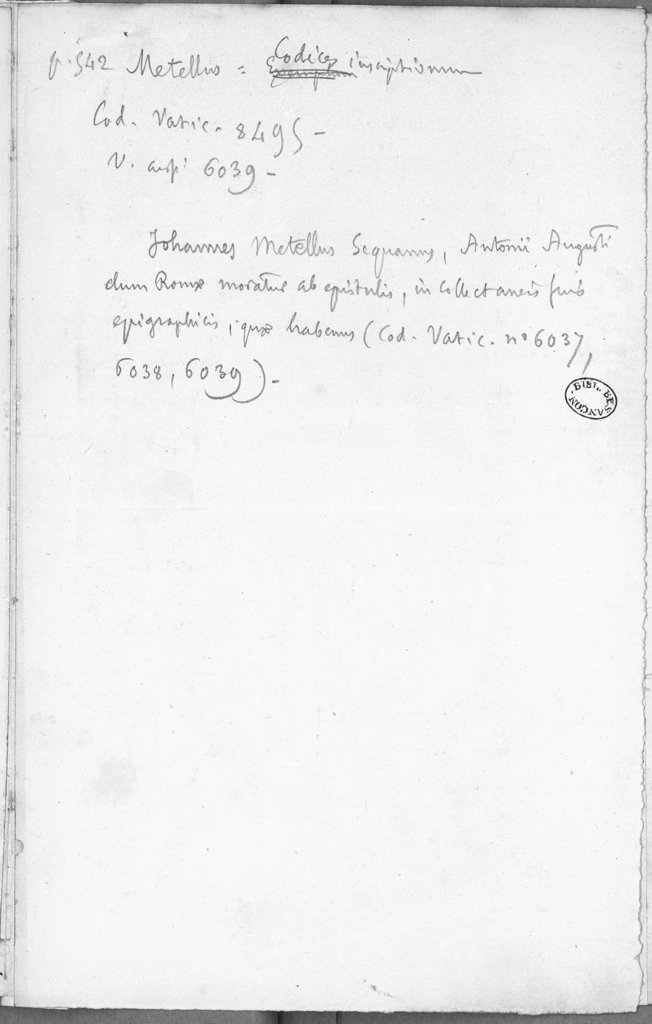 p. 542 Metellus = Codices inscriptionum
Cod. Vatic. 8495 -
V. 6039 -
Johannes Metellus Sequanus, Antonii Augusti
dum Romæ moratur ab epistulis, in collectaneis suis
epigraphicis, quæ habemus (Cod. Vatic. nº 6037,
6038, 6039). -
BIBL. BESANÇON